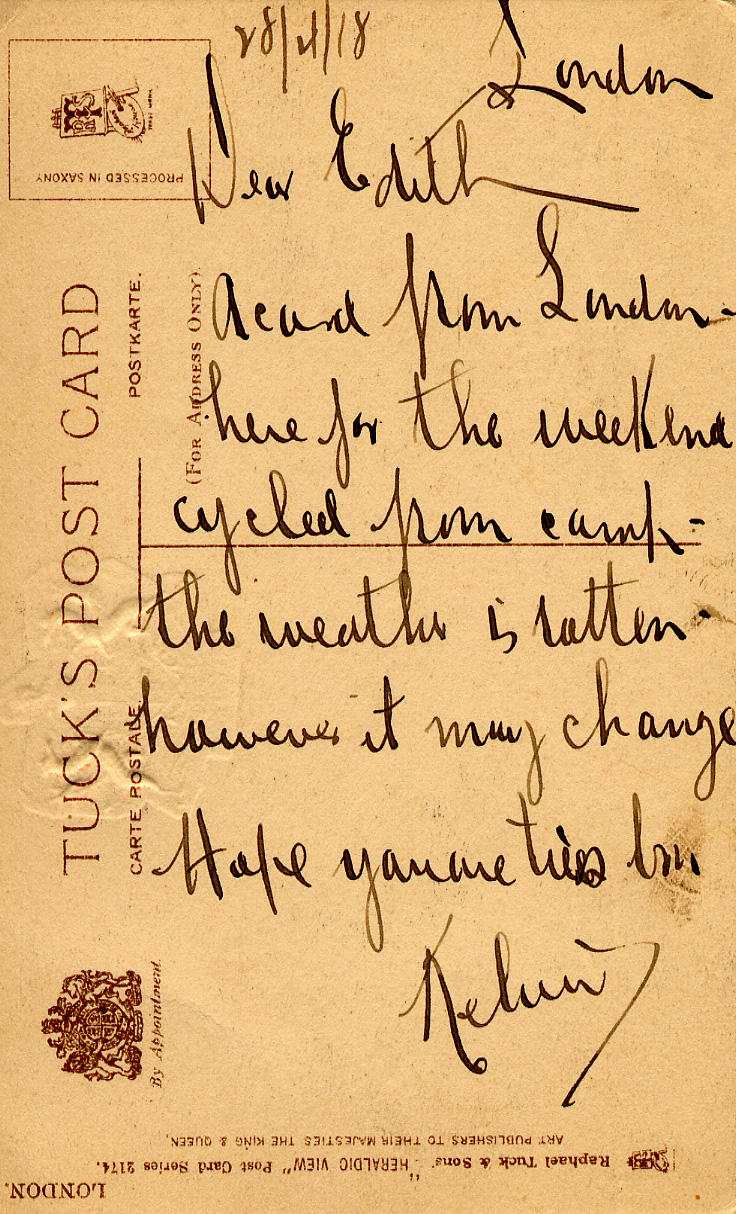 28/4/18
London
Dear Edith
A card from London -
here for the weekend
cycled from camp -
the weather is rotten.
however it may change
Hope you are
Kelvin
PROCESSED IN SAXONY
TRADE MARK
TUCK'S POST CARD
POSTKARTE.
CARTE POSTALE.
(FOR ADDRESS ONLY).
By Appointment.
Raphael Tuck & Sons' "HERALDIC VIEW" Post Card Series 2174.
ART PUBLISHERS TO THEIR MAJESTIES THE KING & QUEEN,
LONDON.